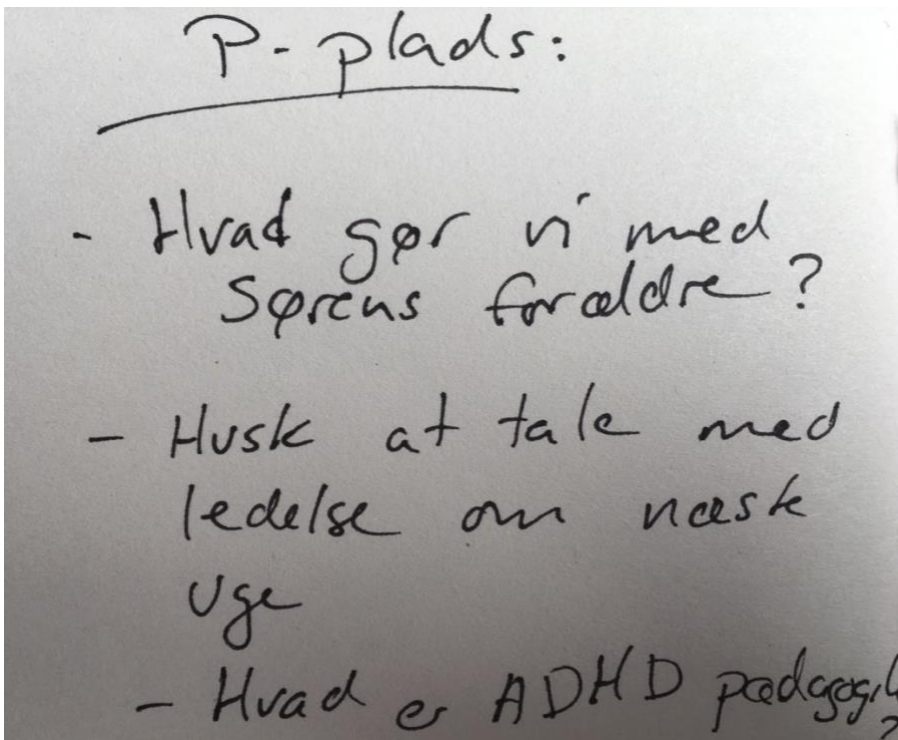 P-plads:
- Hvad gør vi med
Sørens forældre?
- Husk at tale med
ledelse om næste
uge
- Hvad er ADHD pædagogik
?